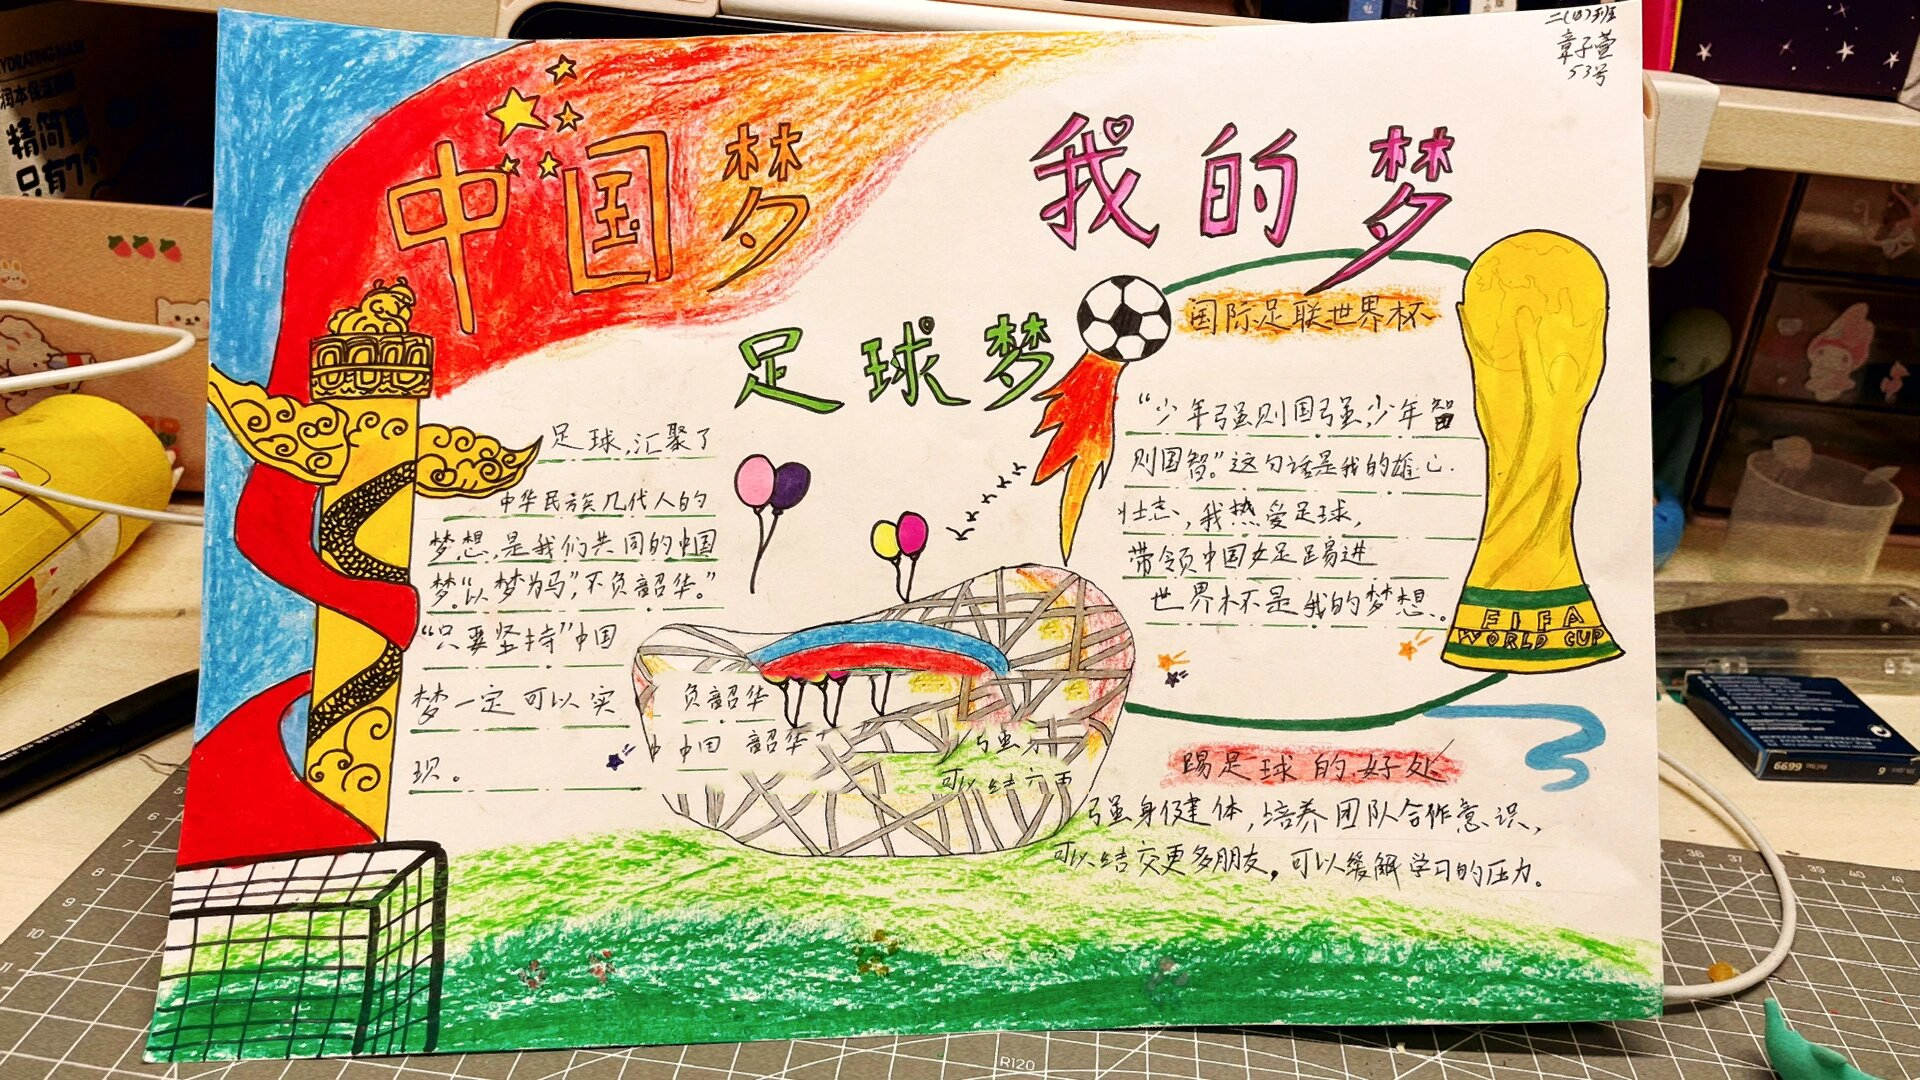 二(四)班
章子萱
53号
中国梦 我的梦
足球梦
足球,汇聚了
中华民族几代人的
梦想,是我们共同的中国
梦。“以梦为马”,不负韶华。”
“只要坚持”中国
梦一定可以实
现。
国际足联世界杯
“少年强则国强,少年智
则国智。”这句话是我的雄心
壮志,我热爱足球,
带领中国女足踢进
世界杯是我的梦想.
FIFA
WORLD CUP
负韶华
中国 韶华
可以结交更
踢足球的好处
强身健体,培养团队合作意识,
可以结交更多朋友,可以缓解学习的压力。
精简到
只有7个
R120
6699